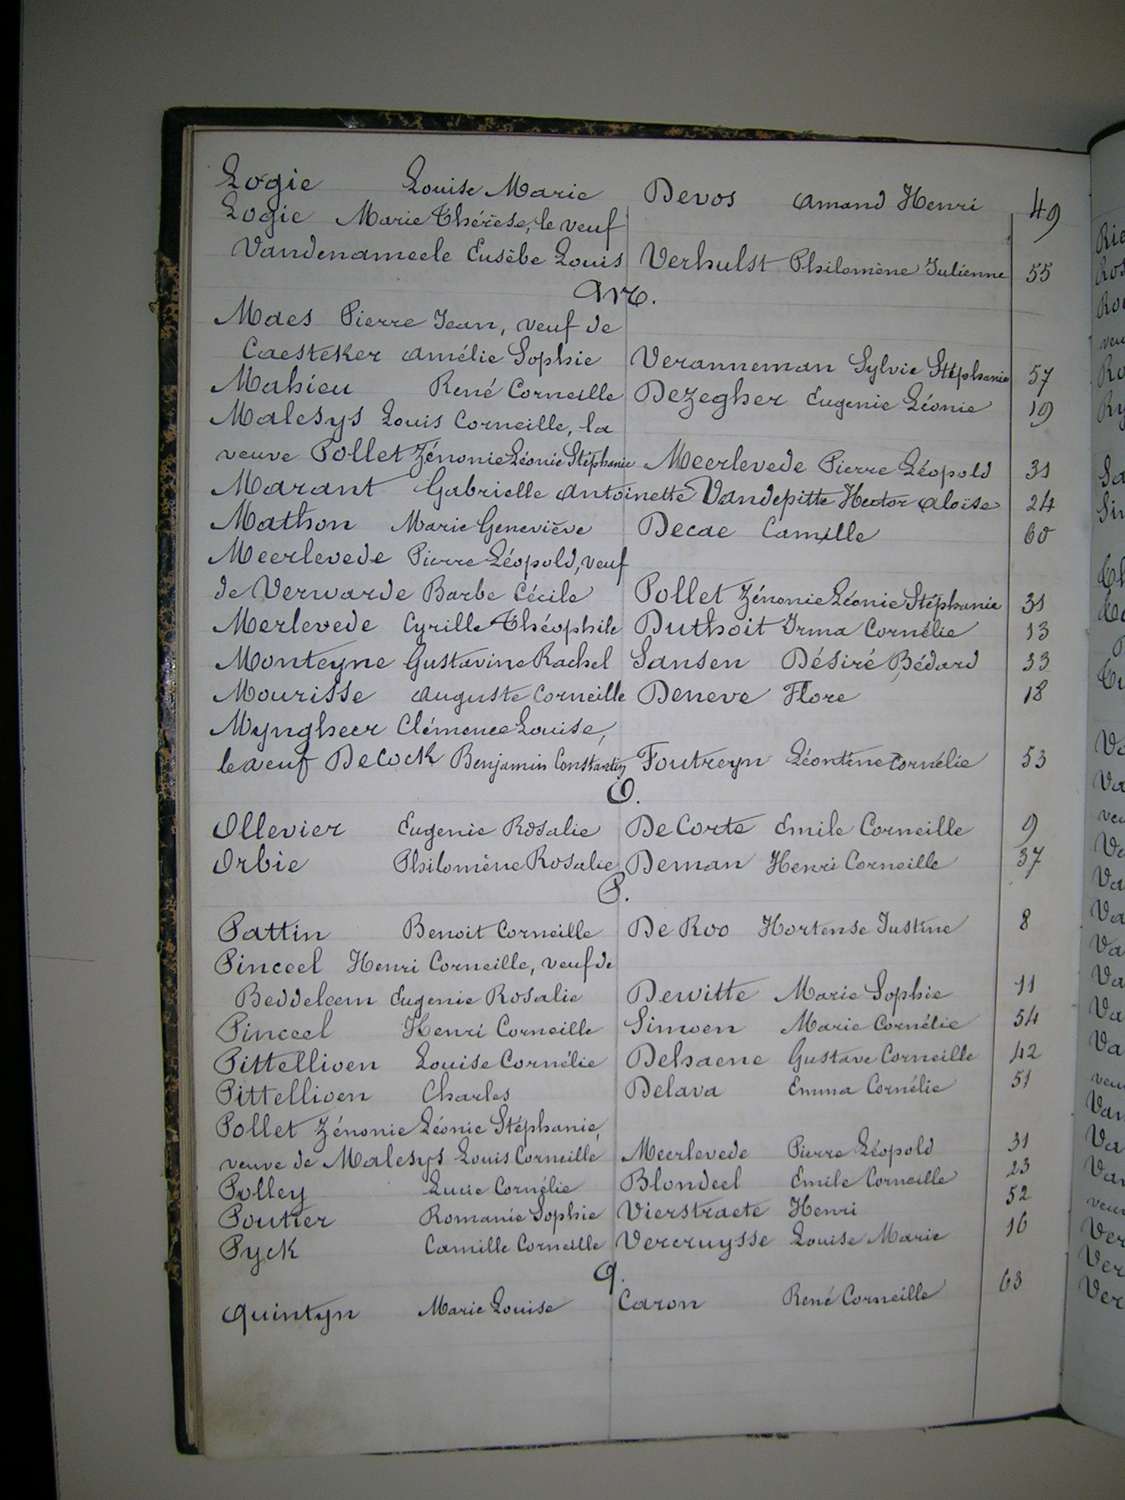 Logie Louise Marie Devos Amand Henri 49
Logie Marie Thérèse, le veuf
Vandenameele Eusèbe Louis Verhulst Philomène Julienne 55
M.
Maes Pierre Jean, veuf de
Caesteker Amélie Sophie Veranneman Sylvie Stéphanie 57
Mahieu René Corneille Dezegher Eugenie Léonie 19
Malesys Louis Corneille, la
veuve Pollet Zénonie Léonie Stéphanie Meerlevede Pierre Léopold 31
Marant Gabrielle Antoinette Vandepitte Hector Aloïse 24
Mathon Marie Geneviève Decae Camille 60
Meerlevede Pierre Léopold, veuf
de Verwarde Barbe Cécile Pollet Zénonie Léonie Stéphanie 31
Merlevede Cyrille Théophile Duthoit Irma Cornélie 13
Monteyne Gustavine Rachel Sansen Désiré Bédard 33
Mourisse Auguste Corneille Deneve Flore 18
Myngheer Clémence Louise,
le veuf DeCock Benjamin Constantin Foutreyn Léontine Cornélie 53
O.
Ollevier Eugenie Rosalie DeCorte Emile Corneille 9
Orbie Philomène Rosalie Deman Henri Corneille 37
P.
Pattin Benoit Corneille De Roo Hortense Justine 8
Pinceel Henri Corneille, veuf de
Beddeleem Eugenie Rosalie Dewitte Marie Sophie 11
Pinceel Henri Corneille Simoen Marie Cornélie 54
Pittellioen Louise Cornélie Dehaene Gustave Corneille 42
Pittellioen Charles Delava Emma Cornélie 51
Pollet Zénonie Léonie Stéphanie,
veuve de Malesys Louis Corneille Meerlevede Pierre Léopold 31
Polley Lucie Cornélie Blondeel Emile Corneille 23
Poutier Romanie Sophie Vierstraete Henri 52
Pyck Camille Corneille Vercruysse Louise Marie 16
Q.
Quintyn Marie Louise Caron René Corneille 63